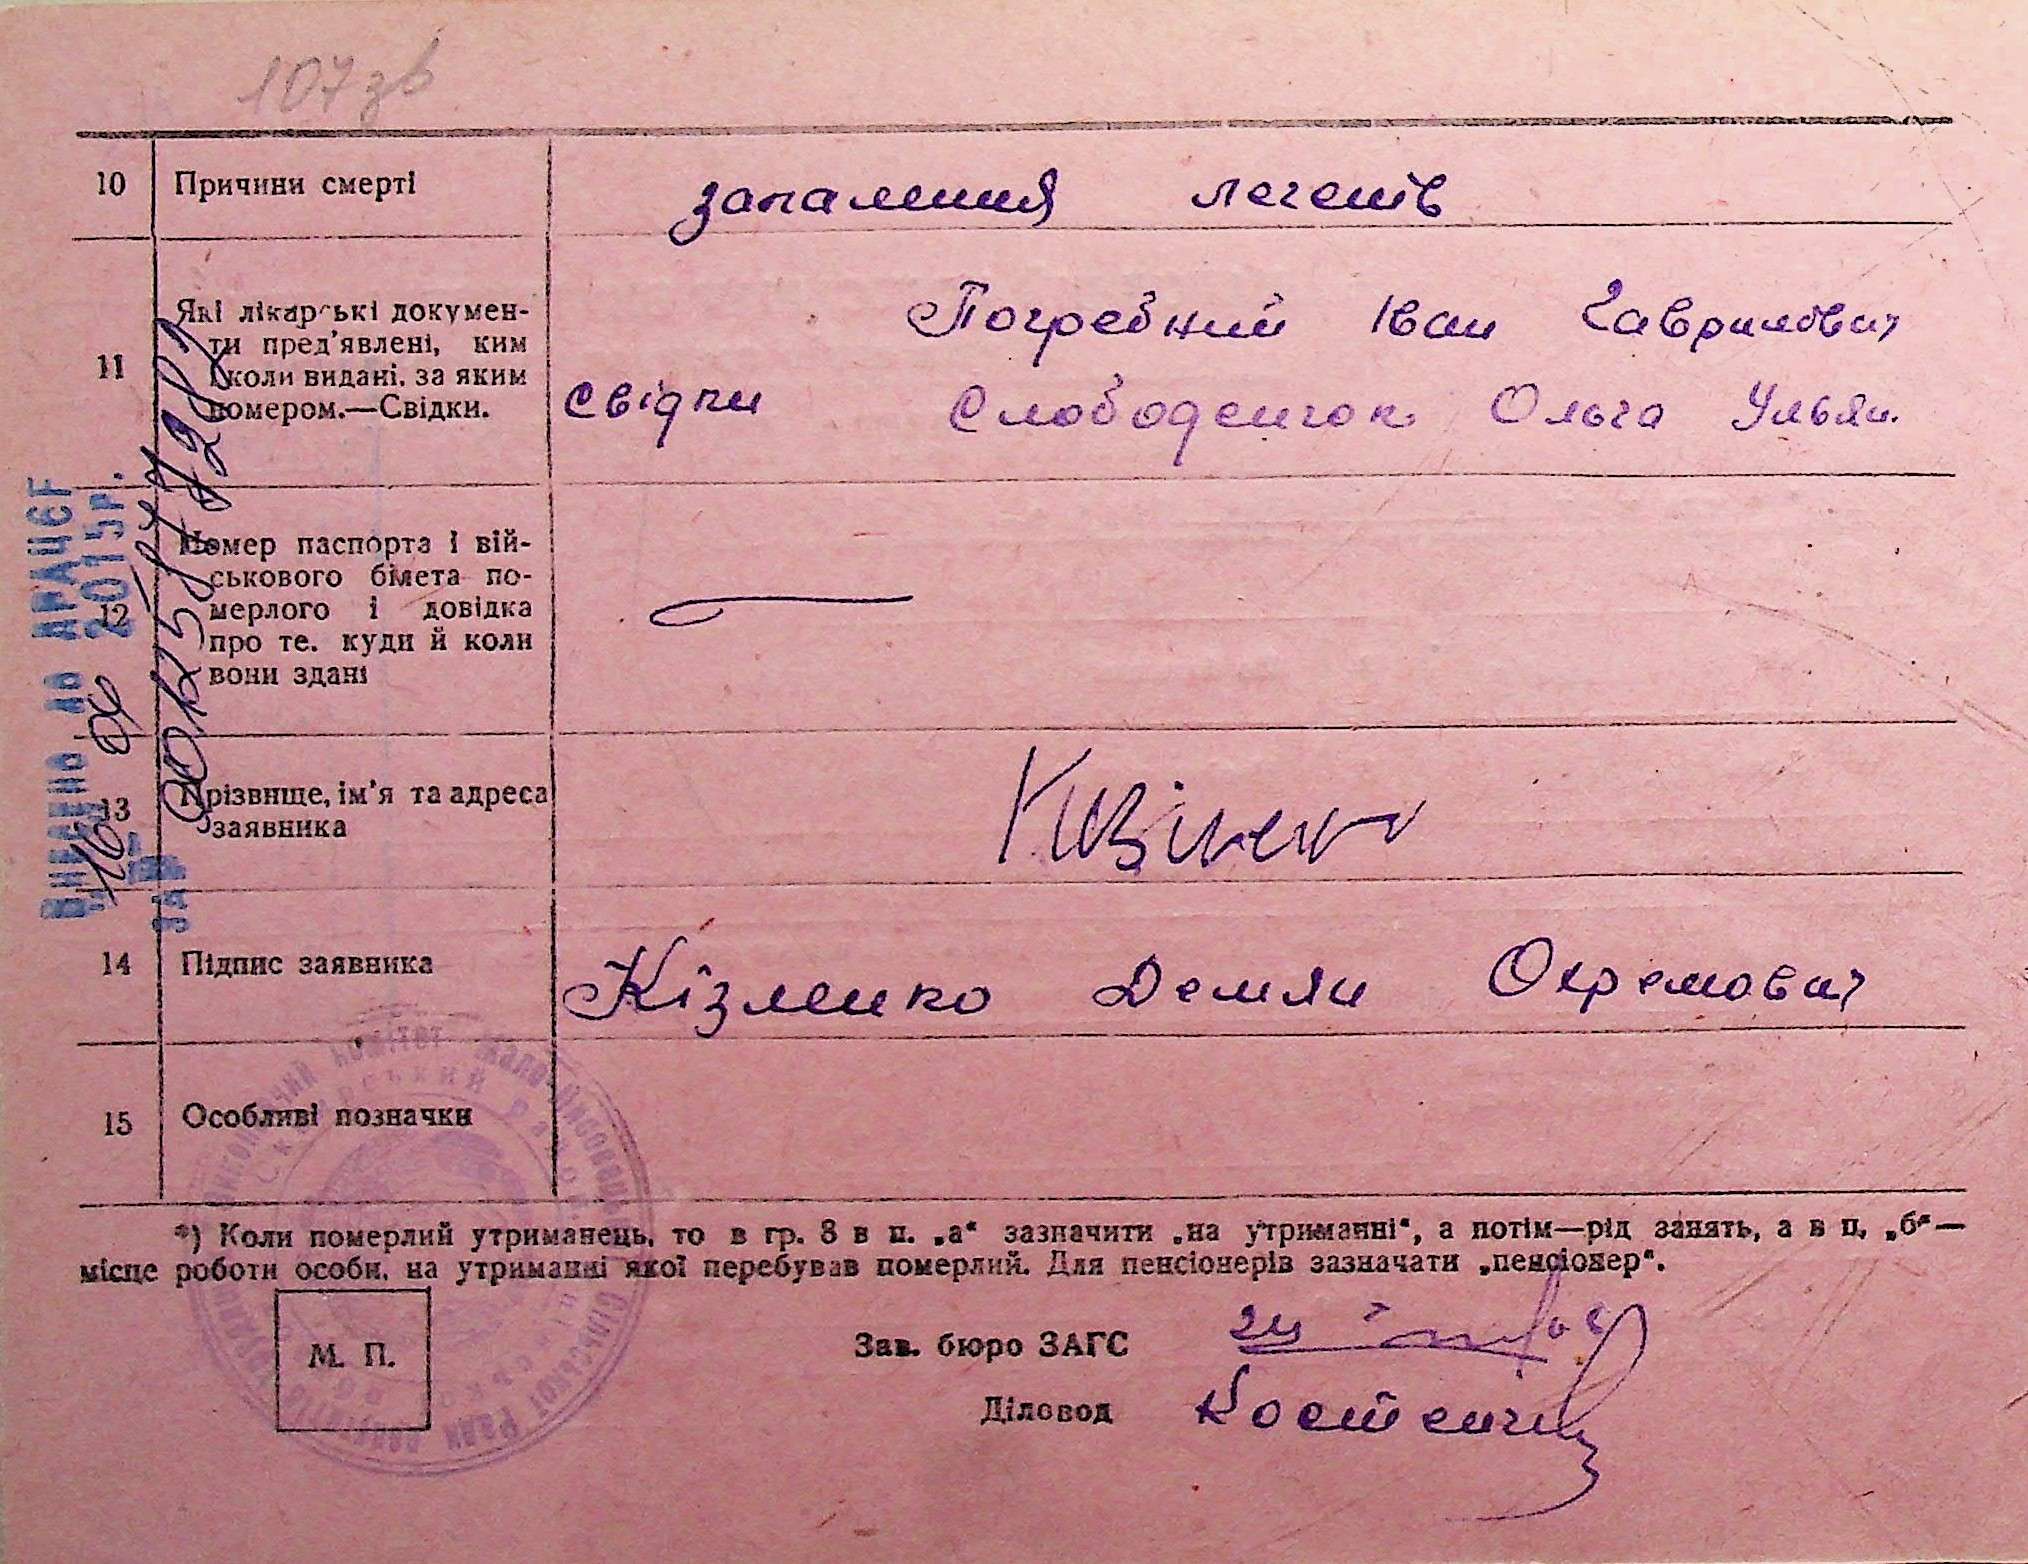 107зв
10 Причини смерті запалення легенів
11 Які лікарські докумен-
ти пред'явлені, ким
і коли видані, за яким
номером.—Свідки.
Погребний Іван Гаврилович
свідки Слободенюк Ольга Ульян.
12 Номер паспорта і вій-
ськового білета по-
мерлого і довідка
про те, куди й коли
вони здані
13 Прізвище, ім'я та адреса
заявника
14 Підпис заявника Кізленко Демян Охремович
15 Особливі позначки
*) Коли померлий утриманець, то в гр. 8 в п. „а“ зазначити „на утриманні“, а потім—рід занять, а в п. „б“—
місце роботи особи, на утриманні якої перебував померлий. Для пенсіонерів зазначати „пенсіонер“.
М. П.
Зав. бюро ЗАГС
Діловод
ВНЕСЕНО ДО ДРАЦСГ
16 2015р.
ЗА №